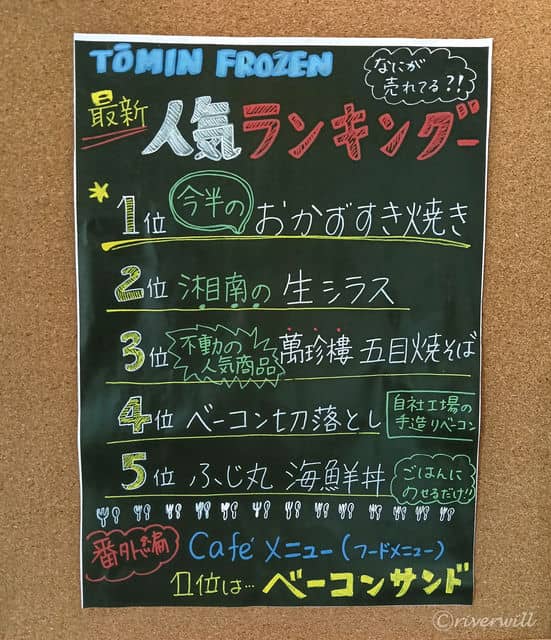 TŌMIN FROZEN
なにが
売れてる?!
最新
人気ランキング
1位 今半の おかずすき焼き
2位 湘南の 生シラス
3位 不動の人気商品 萬珍樓 五目焼そば
4位 ベーコン切落とし 自社工場の手造りベーコン
5位 ふじ丸 海鮮丼 ごはんにのせるだけ!!
番外編 Café メニュー(フードメニュー)
1位は… ベーコンサンド
©riverwill